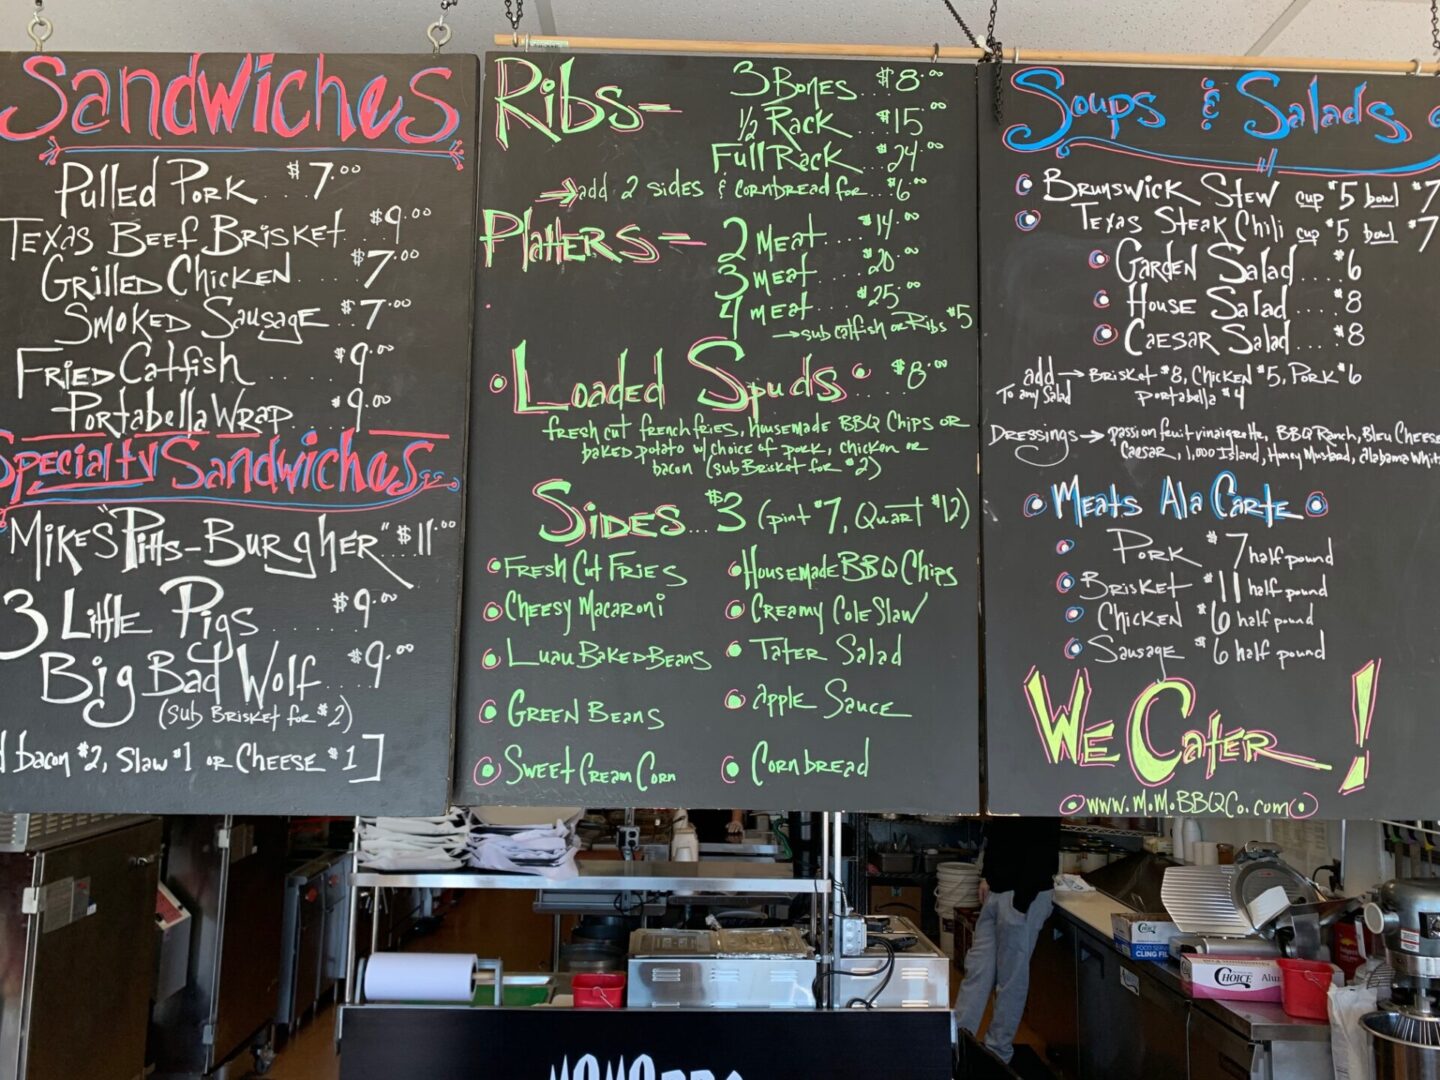 Sandwiches
Pulled Pork $7.00
Texas Beef Brisket $9.00
Grilled Chicken $7.00
Smoked Sausage $7.00
Fried Catfish $9.00
Portabella Wrap $9.00
Specialty Sandwiches
Mike's "Pitts-Burgher" $11.00
3 Little Pigs $9.00
Big Bad Wolf $9.00
(Sub Brisket for $2)
bacon $2, Slaw $1 or Cheese $1]
Ribs- 3 Bones $8.00
1/2 Rack $15.00
Full Rack $24.00
add 2 sides & cornbread for $6.00
Platters- 2 meat $14.00
3 meat $20.00
4 meat $25.00
→ sub catfish or Ribs $5
Loaded Spuds $8.00
fresh cut french fries, housemade BBQ Chips or
baked potato w/ choice of pork, chicken or
bacon (sub Brisket for $2)
Sides... $3 (pint $7, Quart $12)
Fresh Cut Fries
Housemade BBQ Chips
Cheesy Macaroni
Creamy Cole Slaw
Luau Baked Beans
Tater Salad
Green Beans
apple Sauce
Sweet Cream Corn
Cornbread
Soups & Salads
Brunswick Stew cup $5 bowl $7
Texas Steak Chili cup $5 bowl $7
Garden Salad.... $6
House Salad.... $8
Caesar Salad.... $8
add → Brisket $8, Chicken $5, Pork $6
To any Salad Portabella $4
Dressings → passion fruit vinaigrette, BBQ Ranch, Bleu Cheese
Caesar, 1,000 Island, Honey Mustard, Alabama Whit
Meats Ala Carte
Pork $7 half pound
Brisket $11 half pound
Chicken $6 half pound
Sausage $6 half pound
We Cater!
www.MoMoBBQCo.com
CHOICE
CLING FIL
CHOICE Alu